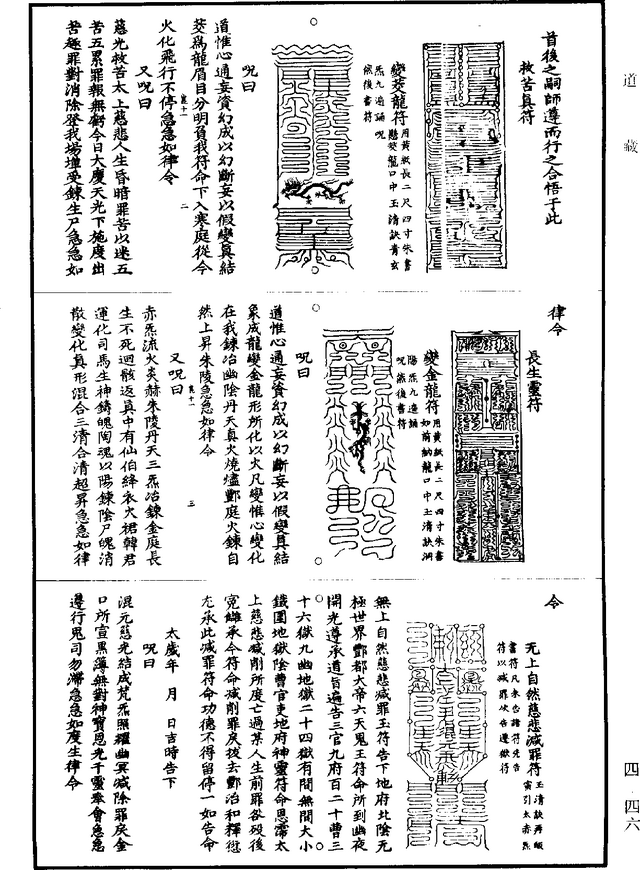 道藏
首後之嗣師遵而行之合悟于此
救苦真符
變茭龍符
用黃紙長二尺四寸朱書
懸茭龍口中玉清訣青玄
炁九遍誦呪
然後書符
呪曰
道惟心通妄資幻成以幻斷妄以假變真結
茭爲龍眉目分明負我符命下入寒庭從今
火化飛行不停急急如律令
又呪曰
慈光救苦太上慈悲人生昏暗罪苦以迷五
苦五累罪報無虧今日大慶天光下施度出
苦趣罪對消除登我場壇受鍊生尸急急如
二
律令
長生靈符
變金龍符
用黃紙長二尺四寸朱書
如前納龍口中玉清訣洞
陽炁九遍誦
呪然後書符
呪曰
道惟心通妄資幻成以幻斷妄以假變真結
象成龍變金龍形所化以火凡變惟心變化
在我鍊冶幽陰丹天真火燒燼酆庭火鍊自
然上昇朱陵急急如律令
又呪曰
赤炁流火炎赫朱陵丹天三炁冶鍊金庭長
生不死迴骸返真中有仙伯絳衣火裙韓君
運化司馬生神鑄魄陶魂以陽鍊陰尸魄消
散變化真形混合三清合清超昇急急如律
三
令
无上自然慈悲滅罪符
玉清訣再皈
書符凡朱告諸符先告
符以滅罪次告遷獄符
無上自然慈悲滅罪玉符告下地府北陰无
極世界酆都大帝六天鬼王符命所到幽夜
開光遵承道旨遍告三官九府百二十曹三
十六獄九幽地獄二十四獄有間無間大小
鐵圍地獄陰曹官吏地府神靈符命思霈太
上慈悲滅削所度亡過某人生前罪欲歿後
冤讎承今符命滅削罪戾拔去酆治和釋愆
尤承此滅罪符命功德不得留停一如告命
太歲年 月 日吉時告下
呪曰
混元慈光結成梵炁照耀幽冥滅除罪戾金
口所宣黑簿無對神寶恩光千靈奉會急急
遵行鬼司勿滯急急如度生律令
四·四六